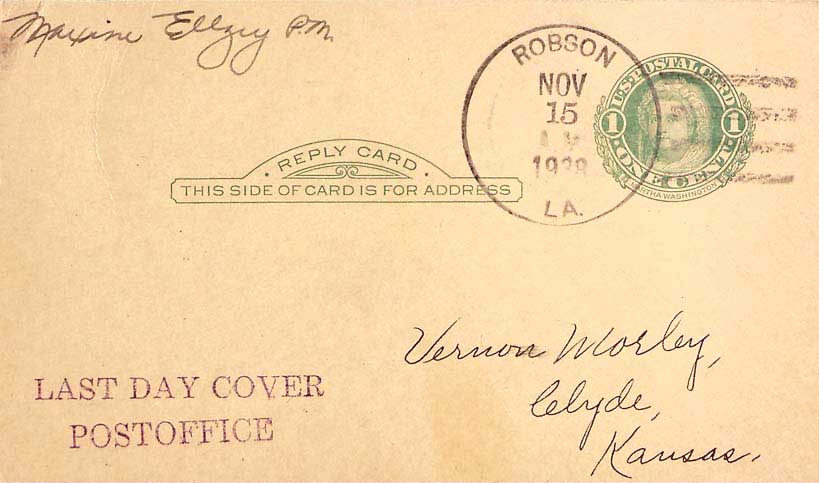 Maxine Ellzey P.M.
ROBSON
NOV
15
1938
LA.
U.S. POSTAL CARD
1 1
ONE CENT
MARTHA WASHINGTON
REPLY CARD
THIS SIDE OF CARD IS FOR ADDRESS
Vernon Morley,
Clyde,
Kansas.
LAST DAY COVER
POSTOFFICE